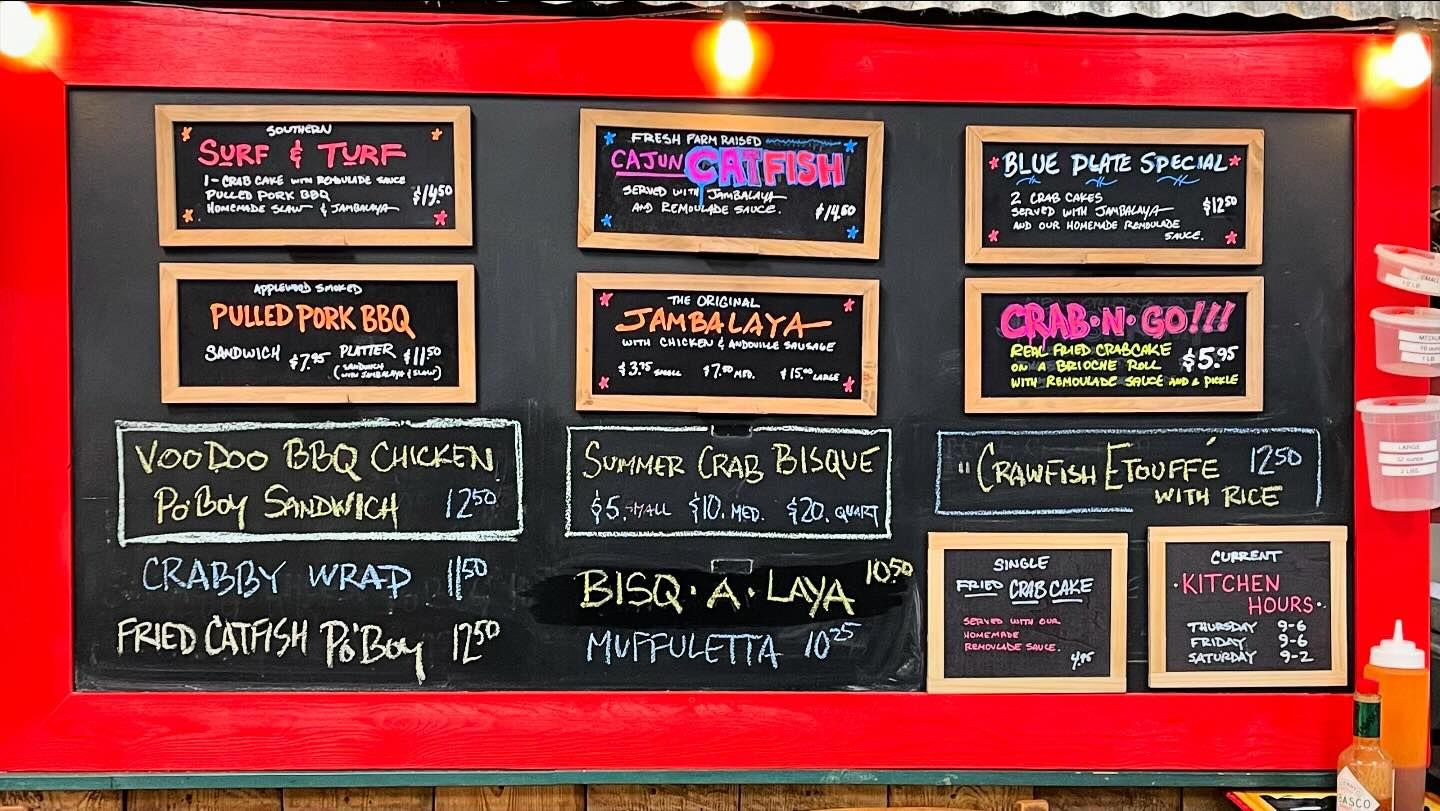 SOUTHERN
SURF & TURF
1 - CRAB CAKE WITH REMOULADE SAUCE
PULLED PORK BBQ
HOMEMADE SLAW & JAMBALAYA
$14.50
FRESH FARM RAISED
CAJUN CATFISH
SERVED WITH JAMBALAYA
AND REMOULADE SAUCE.
$14.50
BLUE PLATE SPECIAL
2 CRAB CAKES
SERVED WITH JAMBALAYA
AND OUR HOMEMADE REMOULADE
SAUCE.
$12.50
APPLEWOOD SMOKED
PULLED PORK BBQ
SANDWICH $7.95 PLATTER $11.50
SANDWICH
(WITH JAMBALAYA & SLAW)
THE ORIGINAL
JAMBALAYA
WITH CHICKEN & ANDOUILLE SAUSAGE
$3.75 SMALL $7.50 MED. $15.00 LARGE
CRAB·N·GO!!!
REAL FRIED CRABCAKE
ON A BRIOCHE ROLL
WITH REMOULADE SAUCE AND A PICKLE
$5.95
VOODOO BBQ CHICKEN
PO'BOY SANDWICH 12.50
SUMMER CRAB BISQUE
$5. SMALL $10. MED. $20. QUART
"CRAWFISH ETOUFFÉ 12.50
WITH RICE
CRABBY WRAP 11.50
FRIED CATFISH PO'BOY 12.50
BISQ·A·LAYA 10.50
MUFFULETTA 10.25
SINGLE
FRIED CRAB CAKE
SERVED WITH OUR
HOMEMADE
REMOULADE SAUCE.
4.95
CURRENT
·KITCHEN
HOURS·
THURSDAY 9-6
FRIDAY 9-6
SATURDAY 9-2
SMALL
1/2 LB
1 LB
LARGE
32 ounce
2 LBS.